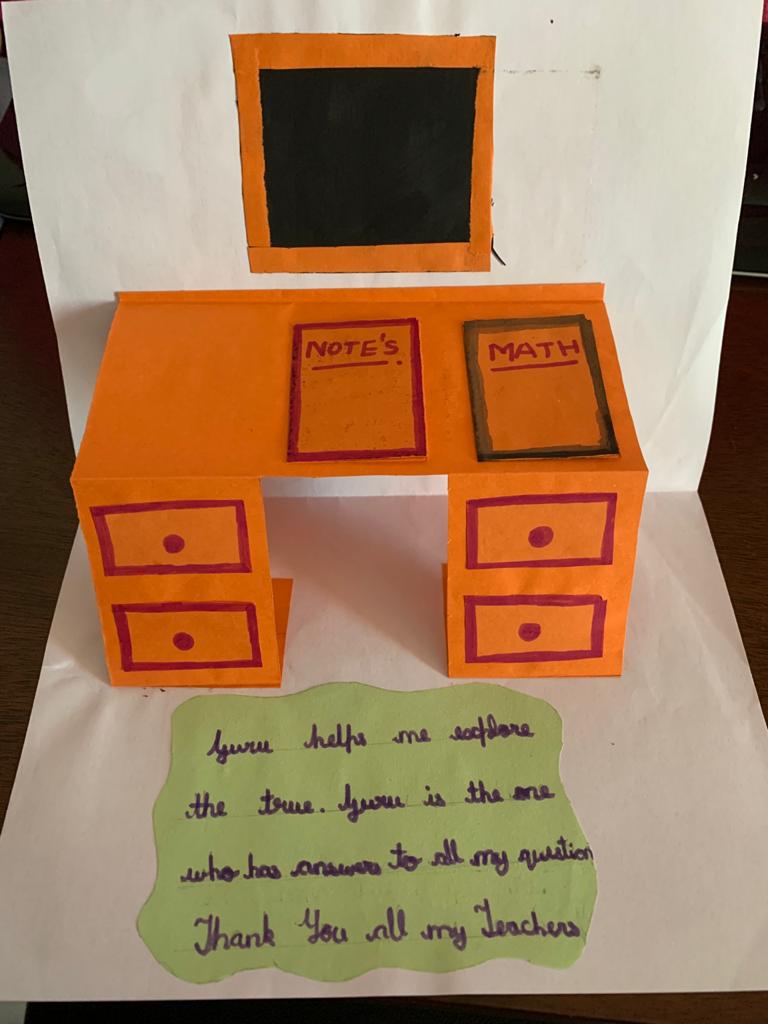 NOTE'S
MATH
Guru helps me explore
the true. Guru is the one
who has answers to all my question
Thank You all my Teachers